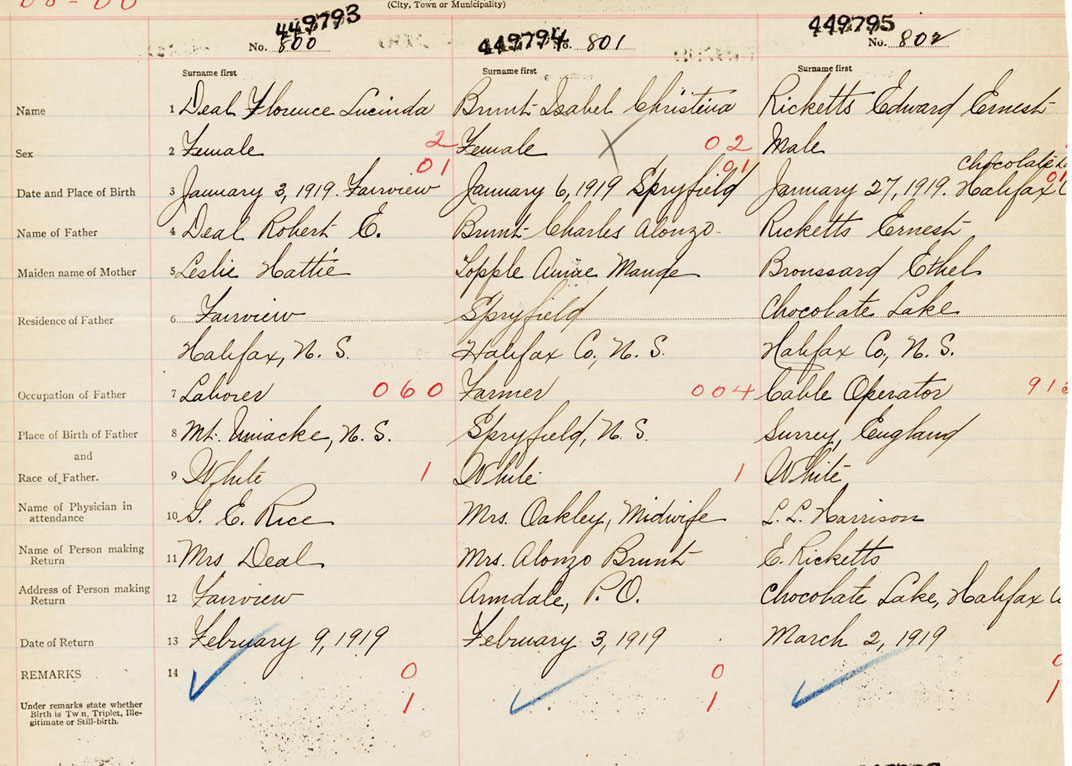 (City, Town or Municipality)
449793 449794 449795
No. 800 No. 801 No. 802
Surname first Surname first Surname first
Name 1 Deal Florence Lucinda Brunt Isabel Christina Ricketts Edward Ernest
Sex 2 Female 2 Female X 02 Male
01 01 Chocolate
Date and Place of Birth 3 January 3, 1919. Fairview January 6, 1919 Spryfield January 27, 1919. Halifax 01
Name of Father 4 Deal Robert E. Brunt Charles Alonzo Ricketts Ernest
Maiden name of Mother 5 Leslie Hattie Annie Maude Broussard Ethel
Residence of Father 6 Fairview Spryfield Chocolate Lake
Halifax, N. S. Halifax Co, N. S. Halifax Co, N. S.
Occupation of Father 7 Laborer 060 Farmer 004 Cable Operator 91
Place of Birth of Father 8 Mt. Uniacke, N. S. Spryfield, N. S. Surrey, England
and
Race of Father. 9 White 1 White 1 White
Name of Physician in
attendance 10 G. E. Rice Mrs. Oakley, Midwife L. L. Harrison
Name of Person making
Return 11 Mrs Deal Mrs. Alonzo Brunt E. Ricketts
Address of Person making
Return 12 Fairview Armdale, P.O. Chocolate Lake, Halifax
Date of Return 13 February 9, 1919 February 3, 1919 March 2, 1919
REMARKS 14 0 0 0
Under remarks state whether 1 1 1
Birth is Tw n, Triplet, Ille-
gitimate or Still-birth.